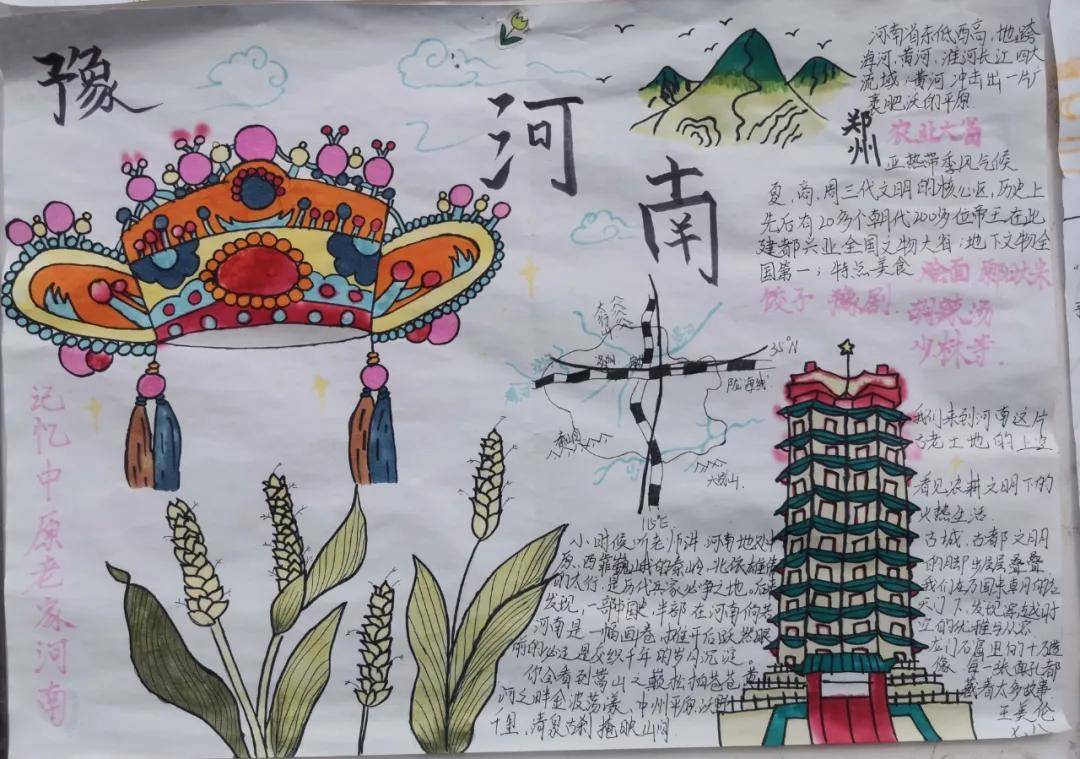 豫
河南
河南省东低西高,地跨
海河,黄河,淮河长江四大
流域,黄河冲击出一片广
袤肥沃的平原.
农业大省
郑州
亚热带季风气候
夏,商,周三代文明的核心区,历史上
先后有20多个朝代200多位帝王在此
建都兴业全国文物大省;地下文物全
国第一;特点美食
烩面
饺子 豫剧.胡辣汤
少林寺.
太行山
35°N
陇海线
大别山.
115°E
记忆中原老家河南
我们来到河南这片
古老土地的上
看见农耕文明下的
火热生活
古城,古都文明
层层叠叠
我们在万国来朝的
天门下,发现穿越时
空的优雅与从容
龙门石窟里的十万造
像,每一张面孔都
藏着太多故事
小时候听老师讲河南地处中
原,西靠巍峨的秦岭,北依
的太行,是历代兵家必争之地。后来
发现,一部中国史,半部在河南
河南是一幅画卷,摊开后跃然眼
前的必定是交织千年的岁月沉淀。
你会看到嵩山之巅松柏苍苍,黄
河之畔金波荡漾,中州平原沃野
千里,清泉古刹掩映山间.